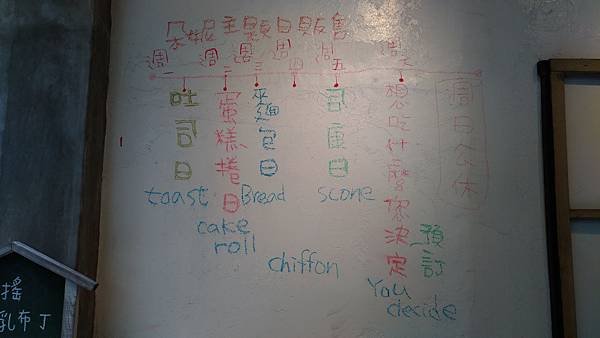 朵妮主題日販售
週一
週二
週三
週四
週五
週六
吐司日
toast
蛋糕捲日
cake
roll
歐麵包日
Bread
chiffon
司康日
scone
想吃什麼你決定
預訂
You
decide
週日公休
搖
乳布丁